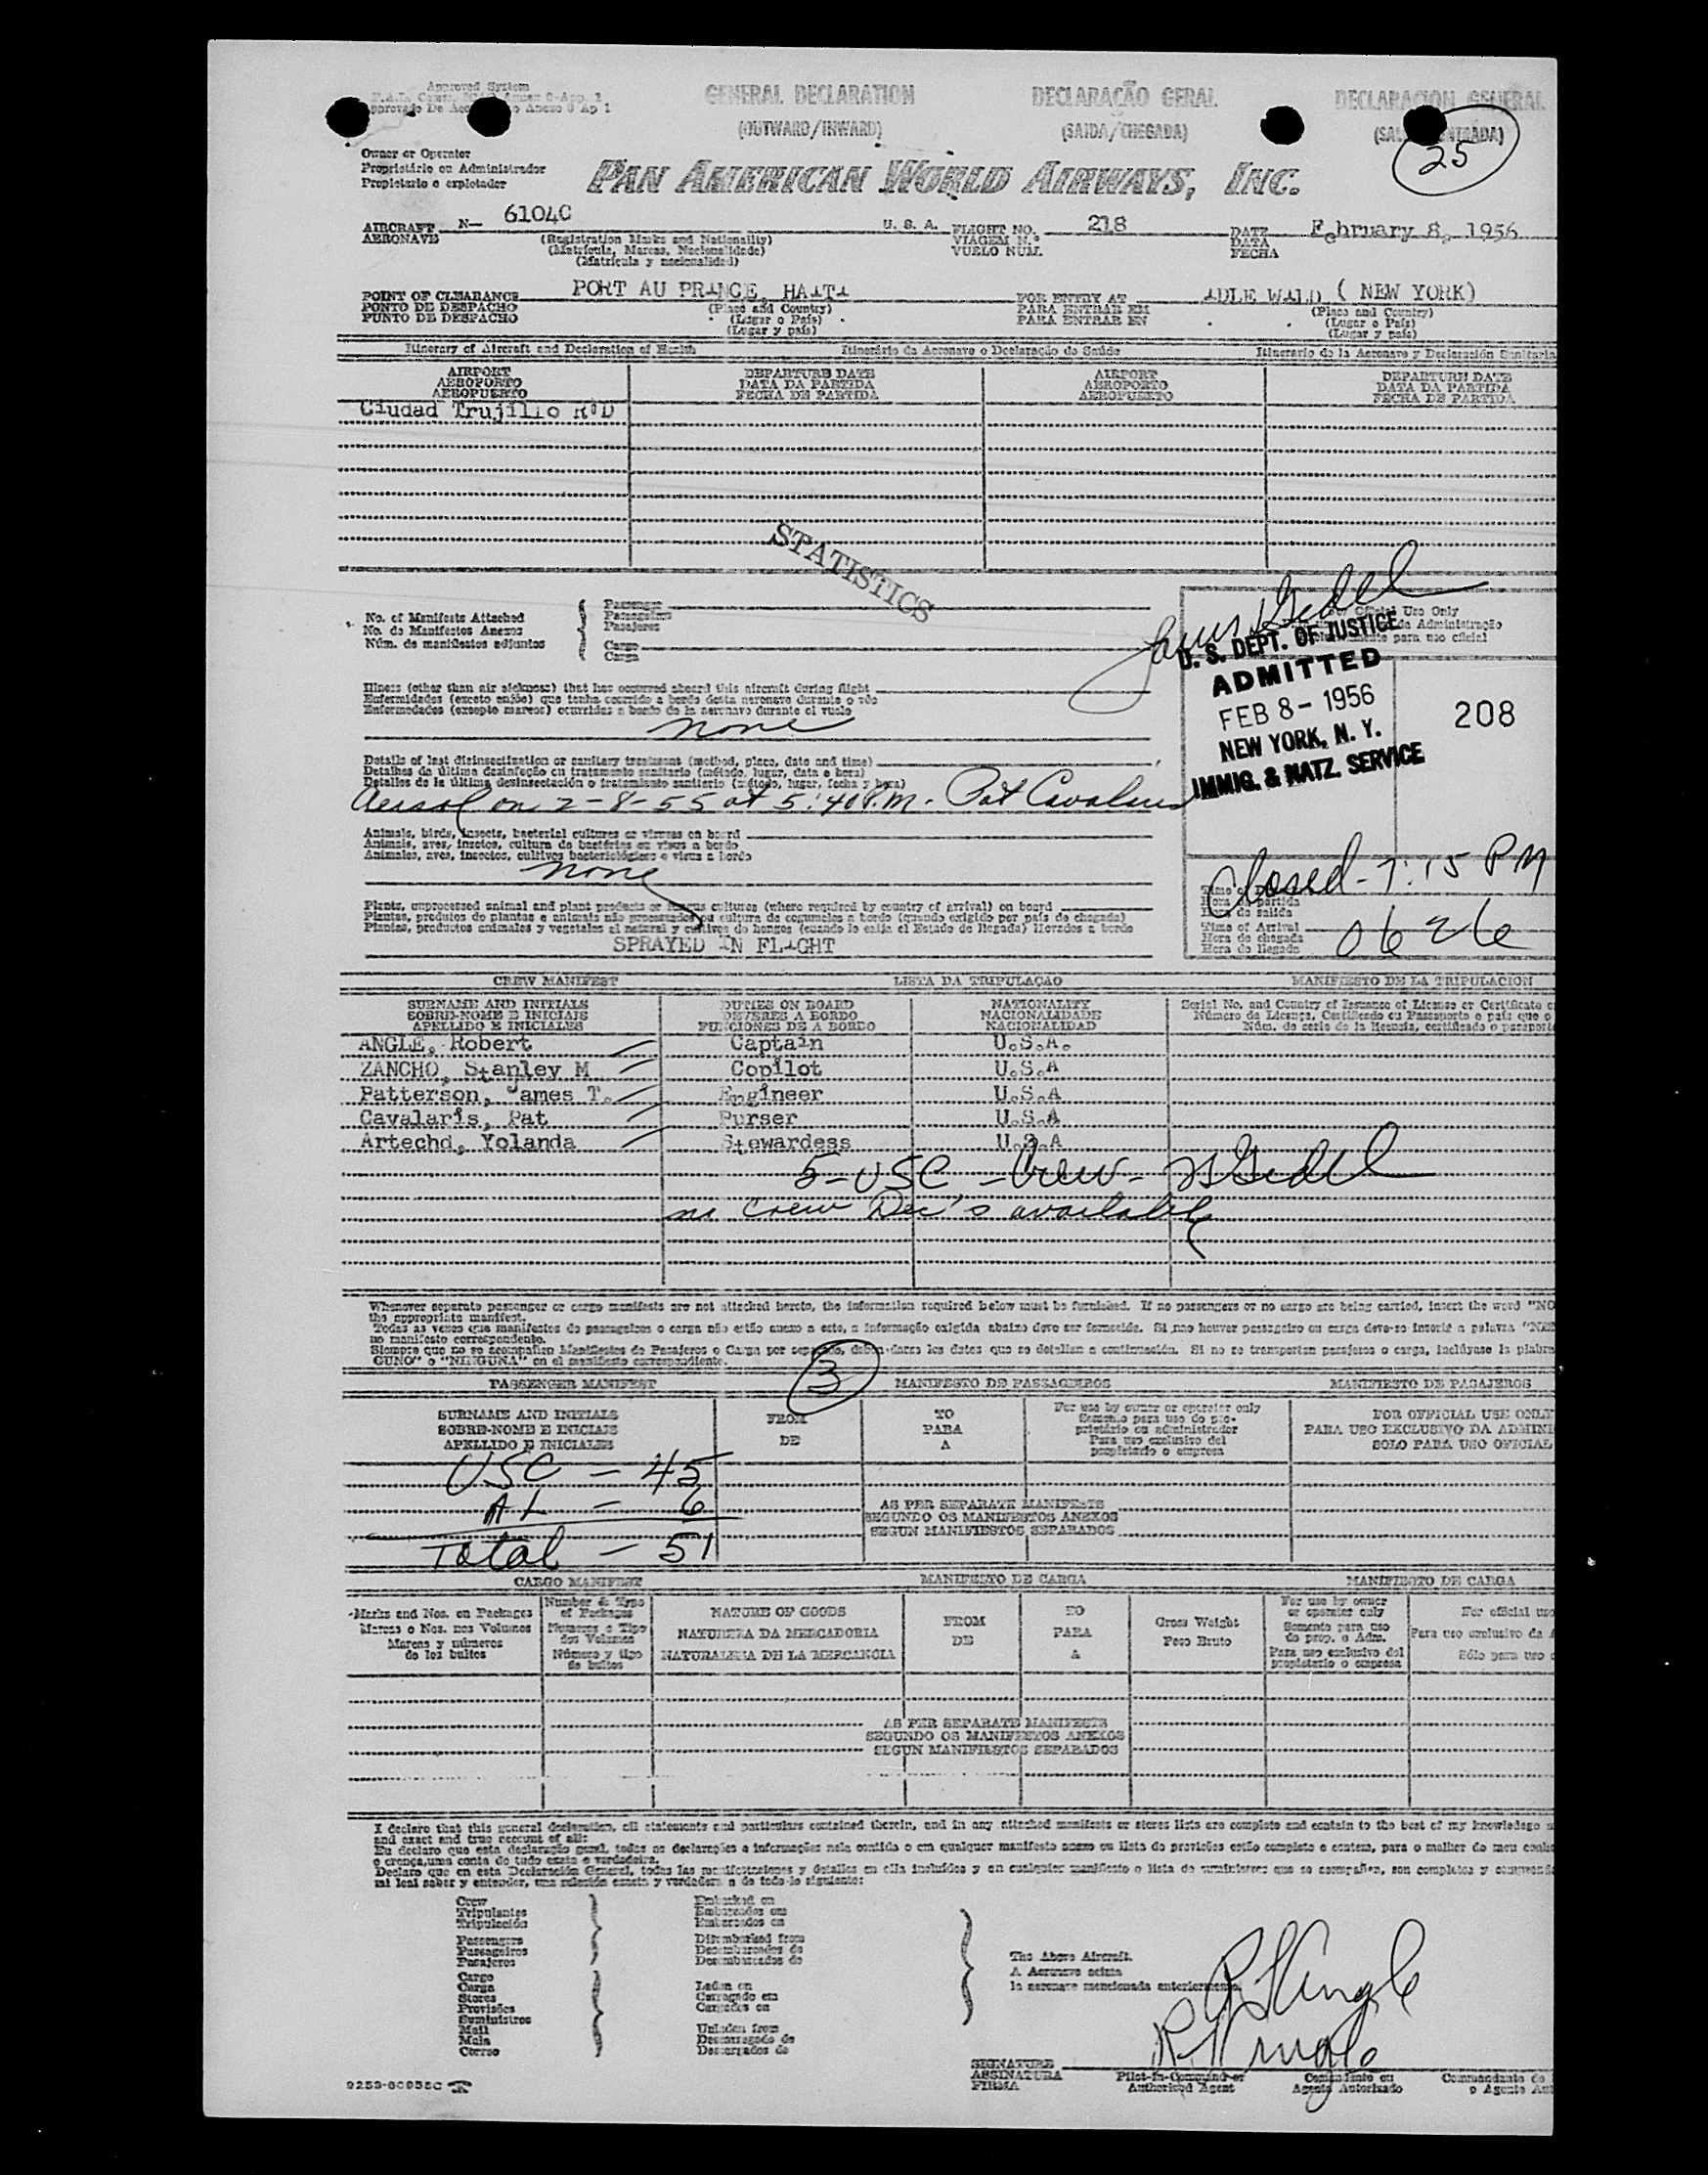 Approved System
GENERAL DECLARATION
DECLARAÇÃO GERAL
DECLARACION GENERAL
(OUTWARD/INWARD)
(SAIDA/CHEGADA)
25
Owner or Operator
Proprietário ou Administrador
Propietario o explotador
PAN AMERICAN WORLD AIRWAYS, INC.
AIRCRAFT N— 6104C U. S. A. FLIGHT NO. 218 DATE February 8, 1956
AERONAVE
(Registration Marks and Nationality)
VIAGEM N.º
DATA
(Matrícula, Marcas, Nacionalidade)
VUELO NUM.
FECHA
(Matrícula y nacionalidad)
POINT OF CLEARANCE PORT AU PRINCE, HAITI FOR ENTRY AT IDLE WILD ( NEW YORK)
PONTO DE DESPACHO (Place and Country) PARA ENTRAR EM (Place and Country)
PUNTO DE DESPACHO (Lugar o País) PARA ENTRAR EN (Lugar o País)
(Lugar y país)
(Lugar y país)
Itinerary of Aircraft and Declaration of Health
Itinerário da Aeronave e Declaração de Saúde
Itinerario de la Aeronave y Declaración Sanitaria
AIRPORT DEPARTURE DATE AIRPORT DEPARTURE DATE
AEROPORTO DATA DA PARTIDA AEROPORTO DATA DA PARTIDA
AEROPUERTO FECHA DE PARTIDA AEROPUERTO FECHA DE PARTIDA
Ciudad Trujillo R.D
STATISTICS
No. of Manifests Attached
No. de Manifestos Anexos
Núm. de manifiestos adjuntos
Passenger
Passageiros
Pasajeros
Cargo
Carga
Official Use Only
U. S. DEPT. OF JUSTICE
ADMITTED
FEB 8 - 1956
NEW YORK, N. Y.
IMMIG. & NATZ. SERVICE
208
Illness (other than air sickness) that has occurred aboard this aircraft during flight
Enfermidades (exceto enjôo) que tenha ocorrido a bordo desta aeronave durante o vôo
Enfermedades (excepto mareos) ocurridas a bordo de la aeronave durante el vuelo
none
Details of last disinsectization or sanitary treatment (method, place, date and time)
Detalhes da última desinfeção ou tratamento sanitário (método, lugar, data e hora)
Detalles de la última desinsectación o tratamiento sanitario (método, lugar, fecha y hora)
Aersol on 2-8-55 at 5:40 P.M. Pat Cavalaris
Animals, birds, insects, bacterial cultures or viruses on board
Animais, aves, insetos, cultura de bactérias ou virus a bordo
Animales, aves, insectos, cultivos bacteriológicos o virus a bordo
none
Closed - 7:15 PM
Hora de partida
Hora de salida
Time of Arrival
Hora de chegada
Hora de llegada
0626
Plants, unprocessed animal and plant products or fungus cultures (where required by country of arrival) on board
Plantas, produtos de plantas e animais não processados ou cultura de cogumelos a bordo (quando exigido por país de chegada)
Plantas, productos animales y vegetales al natural y cultivos de hongos (cuando lo exija el Estado de llegada) llevados a bordo
SPRAYED IN FLIGHT
CREW MANIFEST
LISTA DA TRIPULAÇAO
MANIFIESTO DE LA TRIPULACION
SURNAME AND INITIALS DUTIES ON BOARD NATIONALITY Serial No. and Country of Issuance of License or Certificate
SOBRE-NOME E INICIAIS DEVERES A BORDO NACIONALIDADE Número da Licença, Certificado ou Passaporte e país que o
APELLIDO E INICIALES FUNCIONES DE A BORDO NACIONALIDAD Núm. de serie de la licencia, certificado o pasaporte
ANGLE, Robert Captain U.S.A.
ZANCHO, Stanley M Copilot U.S.A
Patterson, James T. Engineer U.S.A
Cavalaris, Pat Purser U.S.A
Artechd, Yolanda Stewardess U.S.A
5 - USC - Crew -
no Crew Dec's available
Whenever separate passenger or cargo manifests are not attached hereto, the information required below must be furnished. If no passengers or no cargo are being carried, insert the word "NO
the appropriate manifest.
Todas as vezes que manifestos de passageiros o carga não estão anexo a este, a informação exigida abaixo deve ser fornecida. Si não houver passageiro ou carga deve-se inserir a palavra "NEN
no manifesto correspondente.
Siempre que no se acompañen Manifiestos de Pasajeros o Carga por separado, deben darse los datos que se detallan a continuación. Si no se transportan pasajeros o carga, inclúyase la palabra
GUNO" o "NINGUNA" en el manifiesto correspondiente.
3
PASSENGER MANIFEST
MANIFESTO DE PASSAGEIROS
MANIFIESTO DE PASAJEROS
SURNAME AND INITIALS FROM TO For use by owner or operator only FOR OFFICIAL USE ONLY
SOBRE-NOME E INICIAIS DE PARA Somente para uso do pro- PARA USO EXCLUSIVO DA ADMINI
APELLIDO E INICIALES A prietário ou administrador SOLO PARA USO OFICIAL
Para uso exclusivo del
propietario o empresa
USC - 45
AL - 6
Total - 51
AS PER SEPARATE MANIFESTS
SEGUNDO OS MANIFESTOS ANEXOS
SEGUN MANIFIESTOS SEPARADOS
CARGO MANIFEST
MANIFESTO DE CARGA
MANIFIESTO DE CARGA
Marks and Nos. on Packages
Marcas e Nos. nos Volumes
Marcas y números
de los bultos
Number & Type
of Packages
Números e Tipo
dos Volumes
Número y tipo
de bultos
NATURE OF GOODS
NATUREZA DA MERCADORIA
NATURALEZA DE LA MERCANCIA
FROM
DE
TO
PARA
A
Gross Weight
Peso Bruto
For use by owner
or operator only
Somente para uso
do prop. o Adm.
Para uso exclusivo del
propietario o empresa
For official use
Para uso exclusivo da
Sólo para uso
AS PER SEPARATE MANIFESTS
SEGUNDO OS MANIFESTOS ANEXOS
SEGUN MANIFIESTOS SEPARADOS
I declare that this general declaration, all statements and particulars contained therein, and in any attached manifests or stores lists are complete and contain to the best of my knowledge
and exact and true account of all:
Eu declaro que esta declaração geral, todas as declarações e informações nela contida o em qualquer manifesto anexo ou lista de provisões estão completo e contem, para o melhor do meu
e crença, uma conta de tudo exata e verdadeira.
Declaro que en esta Declaración General, todas las manifestaciones y detalles en ella incluídos y en cualquier manifiesto o lista de suministros que se acompañen, son completos y
mi leal saber y entender, una relación exacta y verdadera de todo lo siguiente:
Crew
Tripulantes
Tripulación
Passengers
Passageiros
Pasajeros
Cargo
Carga
Stores
Provisões
Suministros
Mail
Mala
Correo
Embarked on
Embarcados em
Embarcados en
Disembarked from
Desembarcados de
Desembarcados de
Laden on
Carregado em
Cargados en
Unladen from
Descarregado de
Descargados de
The Above Aircraft.
A Aeronave acima
la aeronave mencionada anteriormente
R J Angle
R J Angle
SIGNATURE
ASSINATURA
FIRMA
Pilot-in-Command or
Authorized Agent
Comandante ou
Agente Autorizado
Commandante de
o Agente Aut